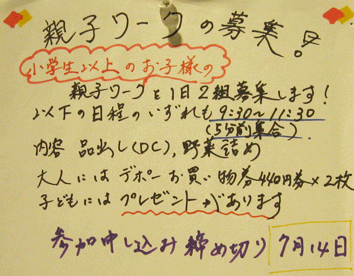 親子ワークの募集!
小学生以上のお子様の
親子ワークを1日2組募集します!
以下の日程のいずれも9:30~11:30
(5分前集合)
内容 品出し(DC),野菜詰め
大人にはデポーお買い物券440円券×2枚
子どもにはプレゼントがあります
参加申し込み締め切り 7月14日